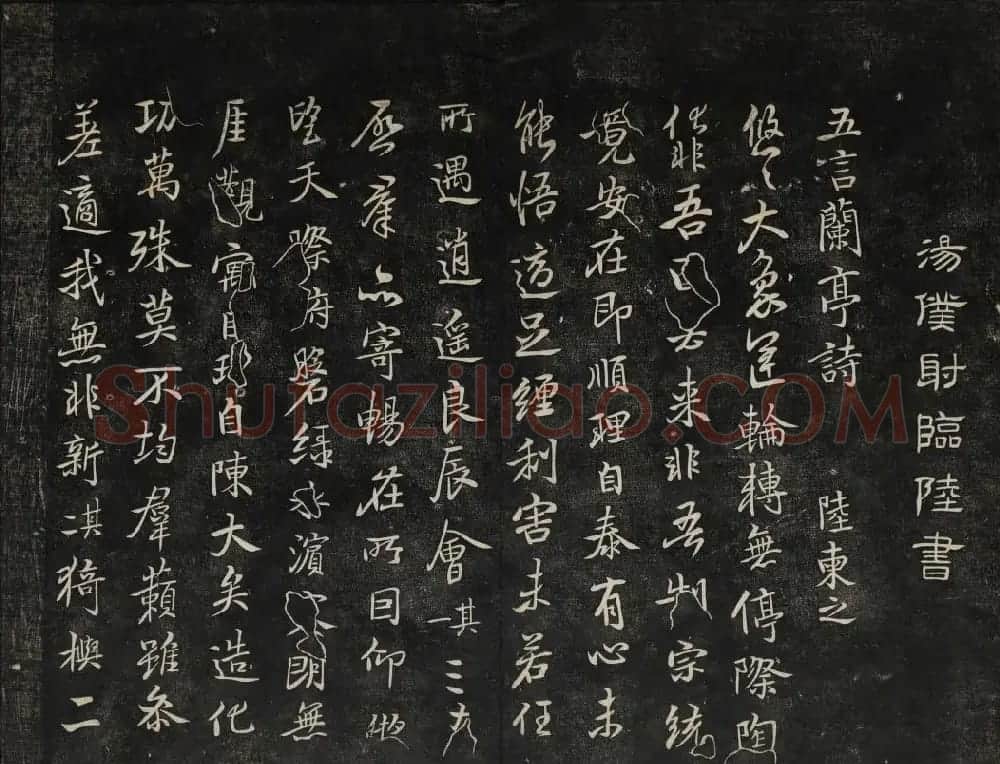 湯僕射臨陸書
五言蘭亭詩 陸東之
悠〻大象運輪轉無停際陶
化非吾因去来非吾制宗統
竟安在即順理自泰有心未
能悟適足纏利害未若任
所遇逍遥良辰會其一三春
啓羣品寄暢在所因仰
望天際府磐緑水濱朗無
厓觀寓目理自陳大矣造化
功萬殊莫不均羣籟雖参
差適我無非新其二猗與二
Shufaziliao.COM